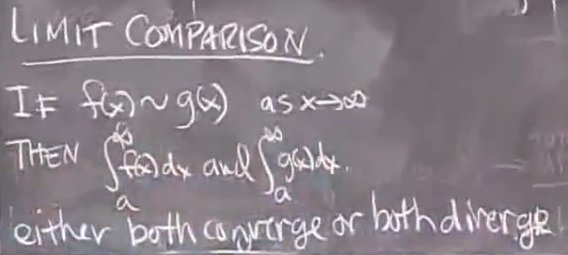 LIMIT COMPARISON.
IF f(x) ~ g(x) as x→∞
THEN ∫_a^∞ f(x) dx and ∫_a^∞ g(x) dx.
either both converge or both diverge